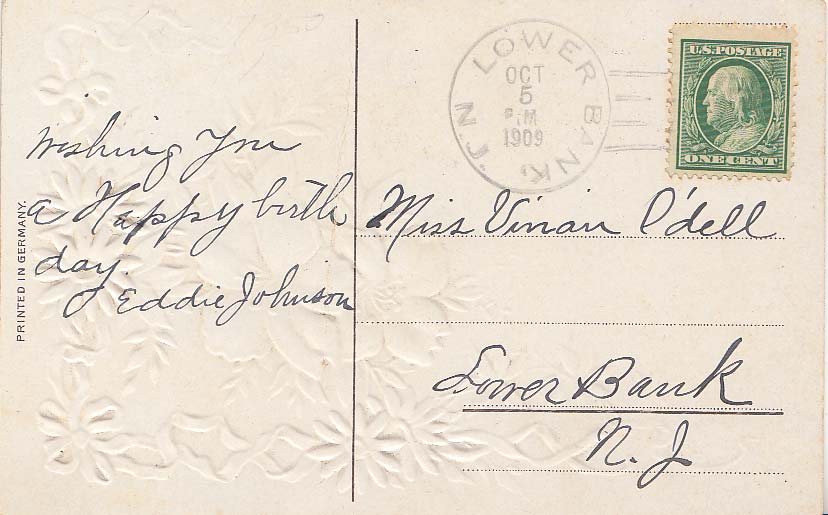 LOWER BANK, N.J.
OCT
5
P.M
1909
U.S. POSTAGE
ONE CENT
Wishing You
a Happy birth
day.
Eddie Johnson
Miss Vinian O'dell
Lower Bank
N. J
PRINTED IN GERMANY.